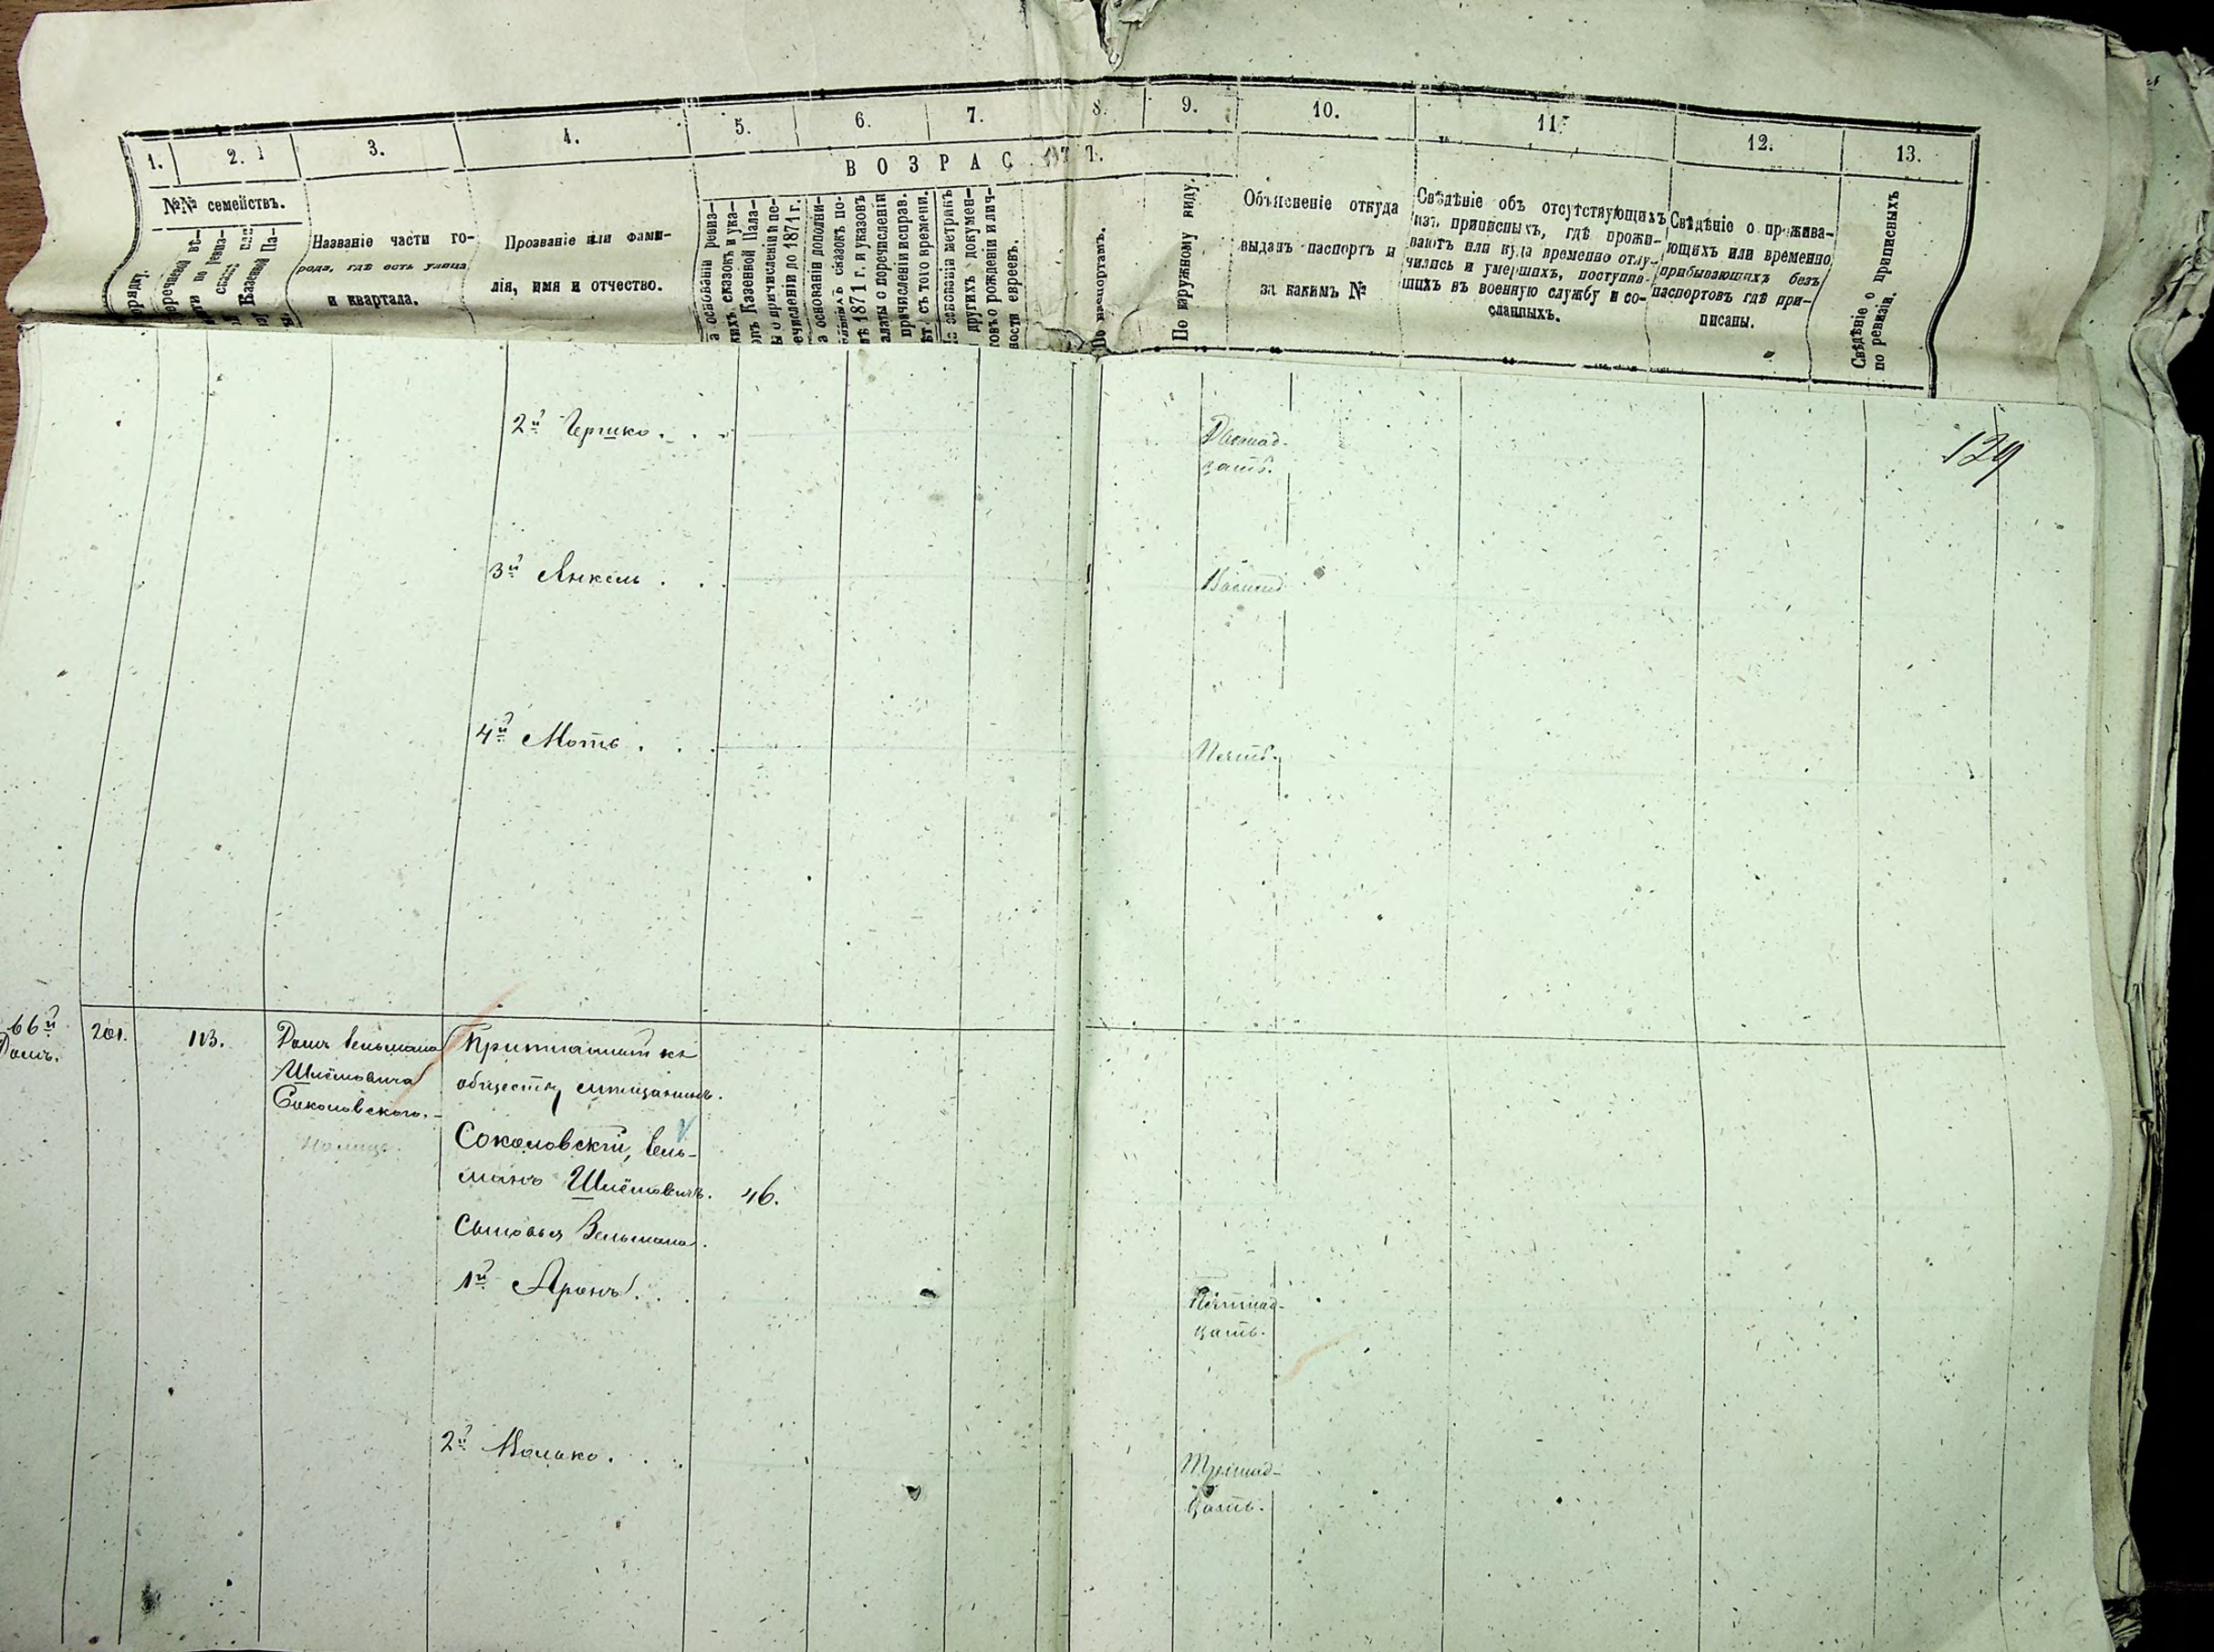 1. 2. 3. 4. 5. 6. 7. 8. 9. 10. 11. 12. 13.
ВОЗРАСТ.
№№ семействъ.
Названіе части го-
рода, гдѣ есть улица
и квартала.
Прозваніе или фами-
лія, имя и отчество.
а основаніи ревиз-
кихъ сказокъ и ука-
овъ Казенной Пала-
ы о причисленіи и пе-
ечисленіи до 1871 г.
а основаніи дополни-
сказокъ по-
1871 г. и указовъ
алаты о перечисленіи
причисленіи исправ.
съ того времени.
основаніи метрикъ
другихъ докумен-
овъ о рожденіи и лич-
ности евреевъ.
По паспортамъ.
По наружному виду.
Объясненіе откуда
выданъ паспортъ и
за какимъ №
Свѣдѣніе объ отсутствующихъ
изъ приписныхъ, гдѣ прожи-
ваютъ или куда временно отлу-
чились и умершихъ, поступив-
шихъ въ военную службу и со-
сланныхъ.
Свѣдѣніе о прожива-
ющихъ или временно
прибывающихъ безъ
паспортовъ гдѣ при-
писаны.
Свѣдѣніе о приписныхъ
по ревизіи.
129
2й Гершко. . .
Двѣнад-
цать.
3й Янкель . .
4й Моть . . .
66й
Домъ.
201.
113.
Домъ Вельмана
Шлёмовича
Соколовскаго.
обществу мѣщанинъ.
Соколовскій, Вель-
манъ Шлёмовичъ. 46.
Сыновья Вельмана.
1й Аронъ. . .
Пятнад-
цать.
2й . . .
Тринад-
цать.